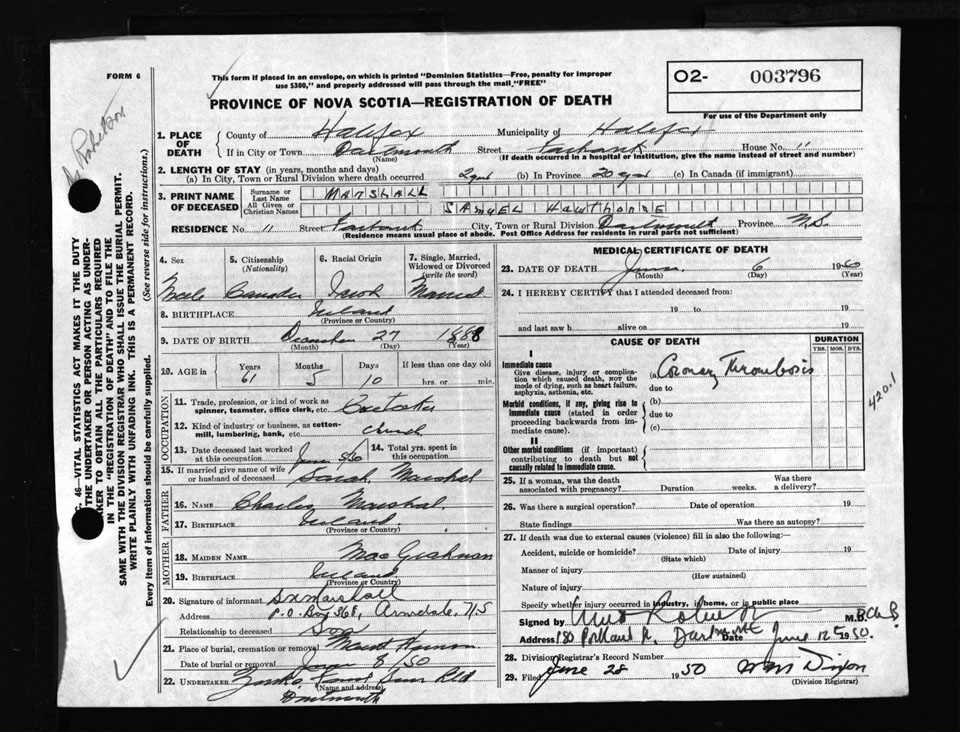 FORM 6
This form if placed in an envelope, on which is printed "Dominion Statistics—Free, penalty for improper
use $300," and properly addressed will pass through the mail "FREE"
PROVINCE OF NOVA SCOTIA—REGISTRATION OF DEATH
O2- 003796
For use of the Department only
1. PLACE OF DEATH County of Halifax Municipality of Halifax
If in City or Town Dartmouth (Name) Street House No. 11
(If death occurred in a hospital or institution, give the name instead of street and number)
2. LENGTH OF STAY (in years, months and days)
(a) In City, Town or Rural Division where death occurred 2 yrs (b) In Province 20 yrs (c) In Canada (if immigrant)
3. PRINT NAME OF DECEASED Surname or Last Name MARSHALL
All Given or Christian Names SAMUEL HAWTHORNE
RESIDENCE No. 11 Street City, Town or Rural Division Dartmouth Province N.S.
(Residence means usual place of abode. Post Office Address for residents in rural parts not sufficient)
4. Sex Male
5. Citizenship (Nationality)
6. Racial Origin Irish
7. Single, Married, Widowed or Divorced (write the word) Married
8. BIRTHPLACE Ireland
(Province or Country)
9. DATE OF BIRTH December 27 1888
(Month) (Day) (Year)
10. AGE in Years 61 Months 5 Days 10 If less than one day old hrs. or min.
OCCUPATION
11. Trade, profession, or kind of work as spinner, teamster, office clerk, etc. Caretaker
12. Kind of industry or business, as cotton-mill, lumbering, bank, etc. Church
13. Date deceased last worked at this occupation
14. Total yrs. spent in this occupation
15. If married give name of wife or husband of deceased Sarah Marshal
FATHER
16. NAME Charles Marshal
17. BIRTHPLACE Ireland
(Province or Country)
MOTHER
18. MAIDEN NAME
19. BIRTHPLACE Ireland
(Province or Country)
20. Signature of informant Marshall
Address P.O. Box 368, Armdale, N.S.
Relationship to deceased Son
21. Place of burial, cremation or removal Mount Hermon
Date of burial or removal June 8/50
22. UNDERTAKER
(Name and address) Dartmouth
MEDICAL CERTIFICATE OF DEATH
23. DATE OF DEATH June 6 19
(Month) (Day) (Year)
24. I HEREBY CERTIFY that I attended deceased from:
19 to 19
and last saw h alive on 19
CAUSE OF DEATH
DURATION
YRS. MOS. DYS.
I
Immediate cause
Give disease, injury or complication which caused death, NOT the mode of dying, such as heart failure, asphyxia, asthenia, etc.
(a) Coronary Thrombosis
due to
Morbid conditions, if any, giving rise to immediate cause (stated in order proceeding backwards from immediate cause).
(b)
due to
(c)
II
Other morbid conditions (if important) contributing to death but not causally related to immediate cause.
420.1
25. If a woman, was the death associated with pregnancy? Duration weeks. Was there a delivery?
26. Was there a surgical operation? Date of operation 19
State findings Was there an autopsy?
27. If death was due to external causes (violence) fill in also the following:—
Accident, suicide or homicide? (State which) Date of injury 19
Manner of injury
(How sustained)
Nature of injury
Specify whether injury occurred in industry, in home, or in public place
Signed by M.B. Ch.B.
Address 180 Portland St. Dartmouth Date June 12 1950.
28. Division Registrar's Record Number
29. Filed June 28 1950 Dixon
(Division Registrar)
46—VITAL STATISTICS ACT MAKES IT THE DUTY
THE UNDERTAKER OR PERSON ACTING AS UNDER-
TAKER TO OBTAIN ALL THE PARTICULARS REQUIRED
IN THE "REGISTRATION OF DEATH" AND TO FILE THE
SAME WITH THE DIVISION REGISTRAR WHO SHALL ISSUE THE BURIAL PERMIT.
WRITE PLAINLY WITH UNFADING INK. THIS IS A PERMANENT RECORD.
Every item of information should be carefully supplied. (See reverse side for instructions.)